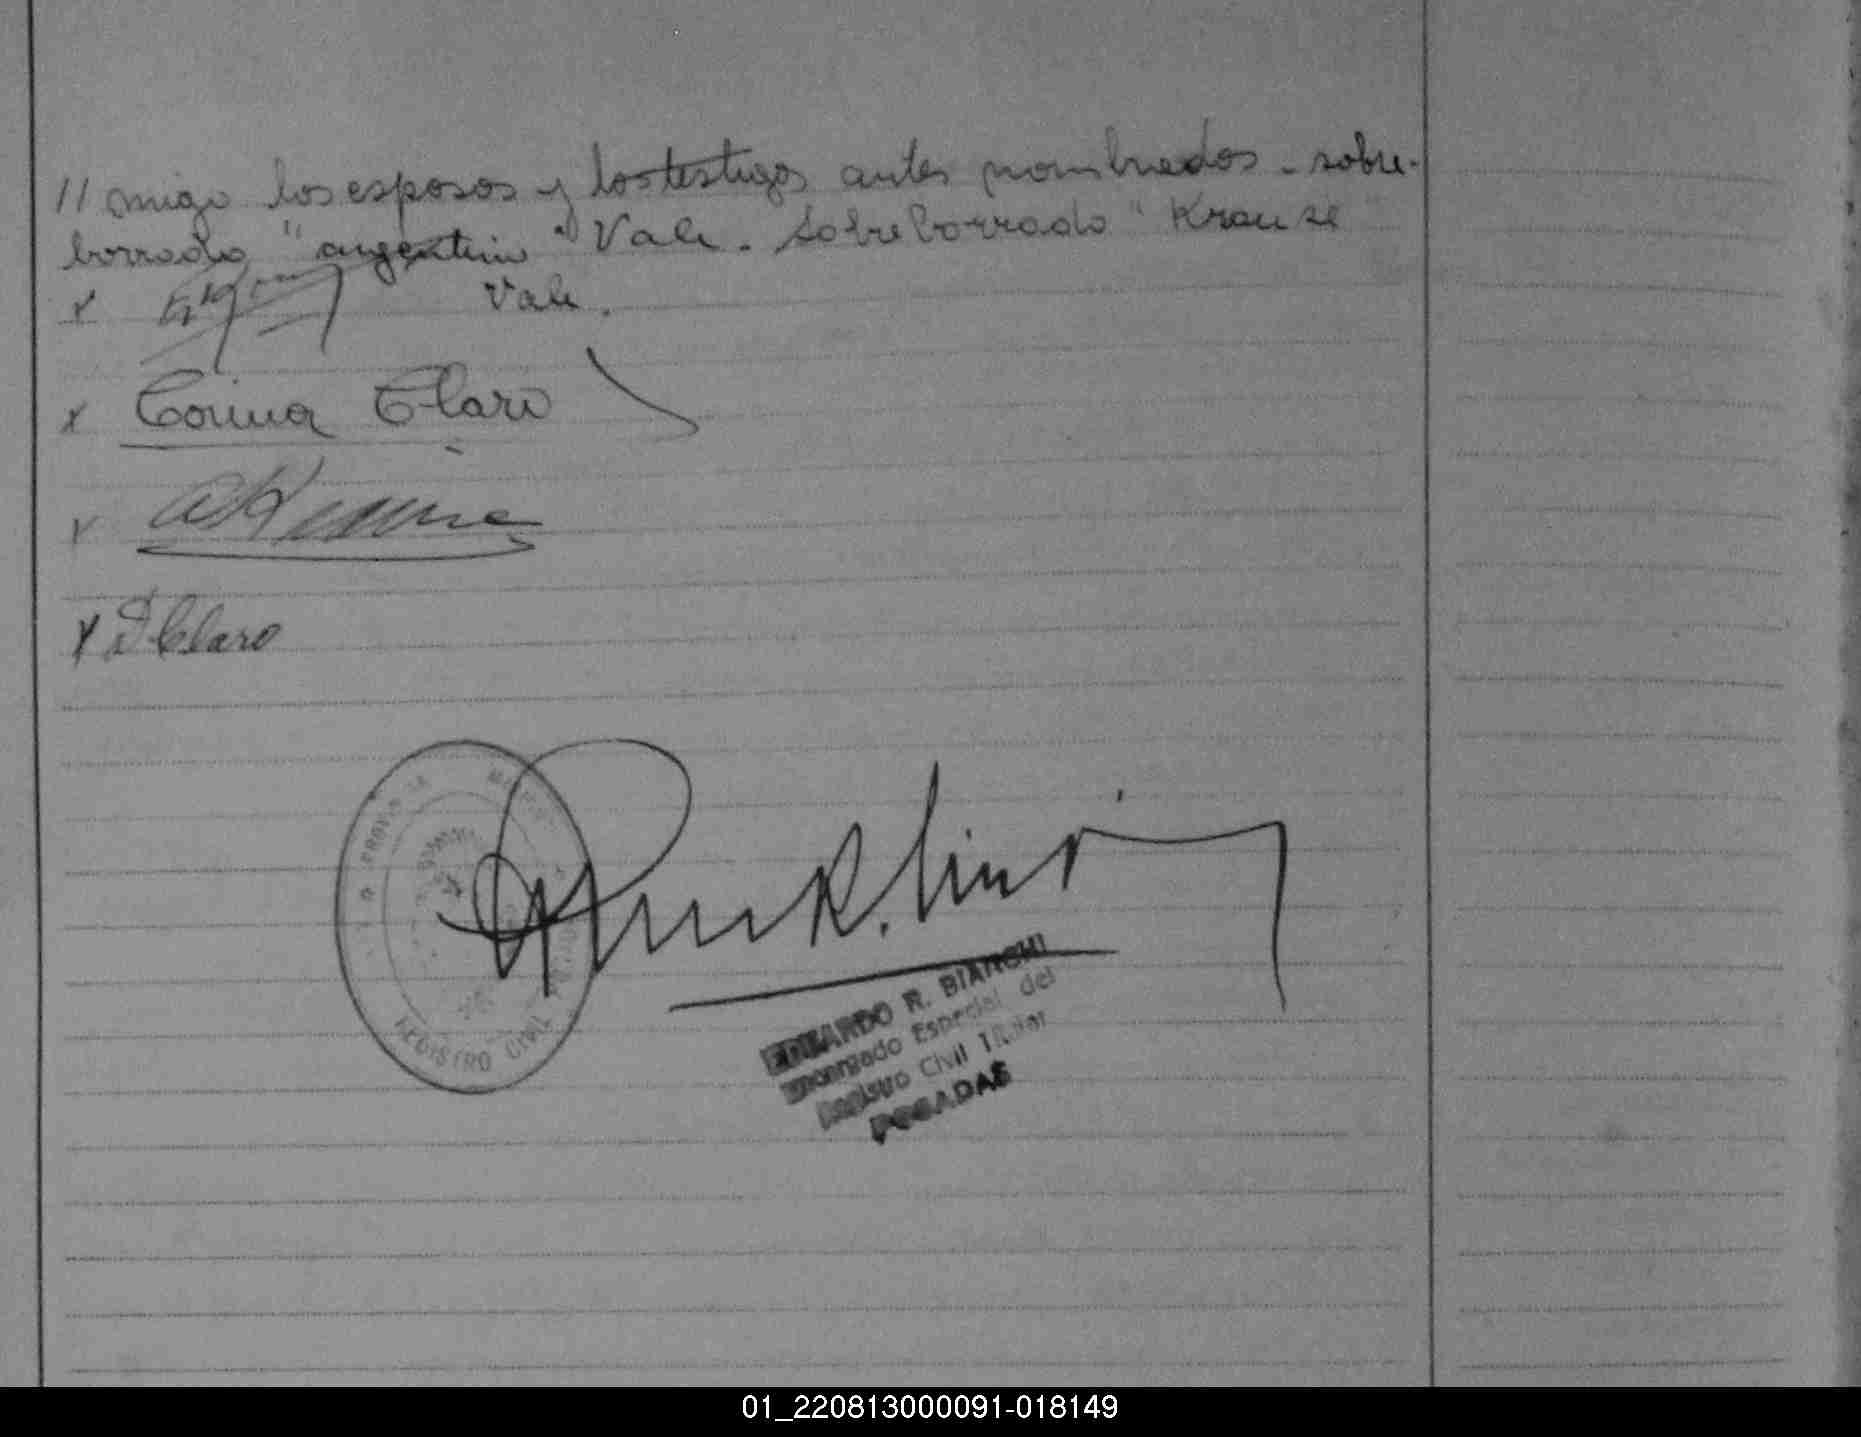 // migo los esposos y los testigos antes nombrados - sobre-
borrado "argentino" Vale. Sobre borrado "Krause"
Vale.
x
x Corina Claro
x
x D Claro
REGISTRO CIVIL
EDUARDO R. BIANCHI
Encargado Especial del
Registro Civil Titular
POSADAS
01_220813000091-018149